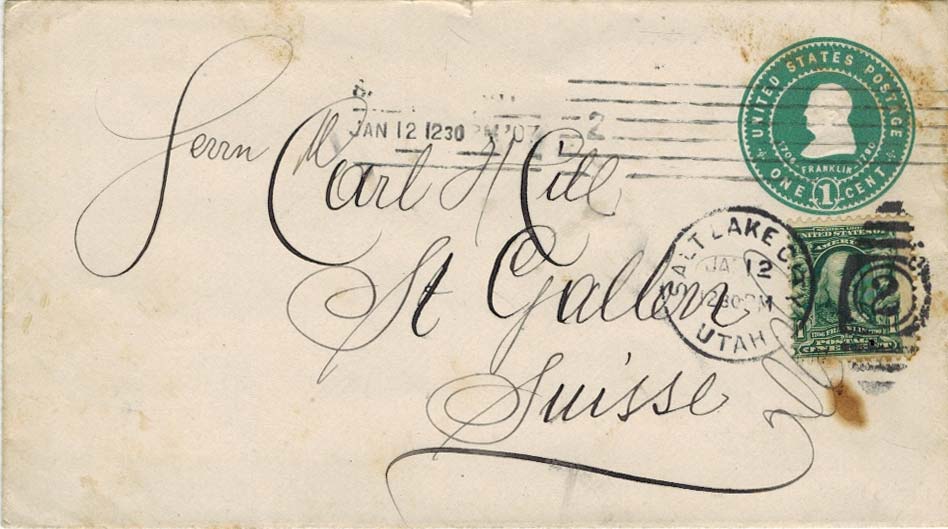 UNITED STATES POSTAGE
1706 FRANKLIN 1790
ONE 1 CENT
JAN 12 1230 PM '07
2
Herrn Carl H Cill
St Gallen
Suisse
SALT LAKE CITY
JA 12
1230PM
UTAH
SERIES 1902
UNITED STATES OF
AMERICA
1706 FRANKLIN 1790
POSTAGE
ONE
1
2